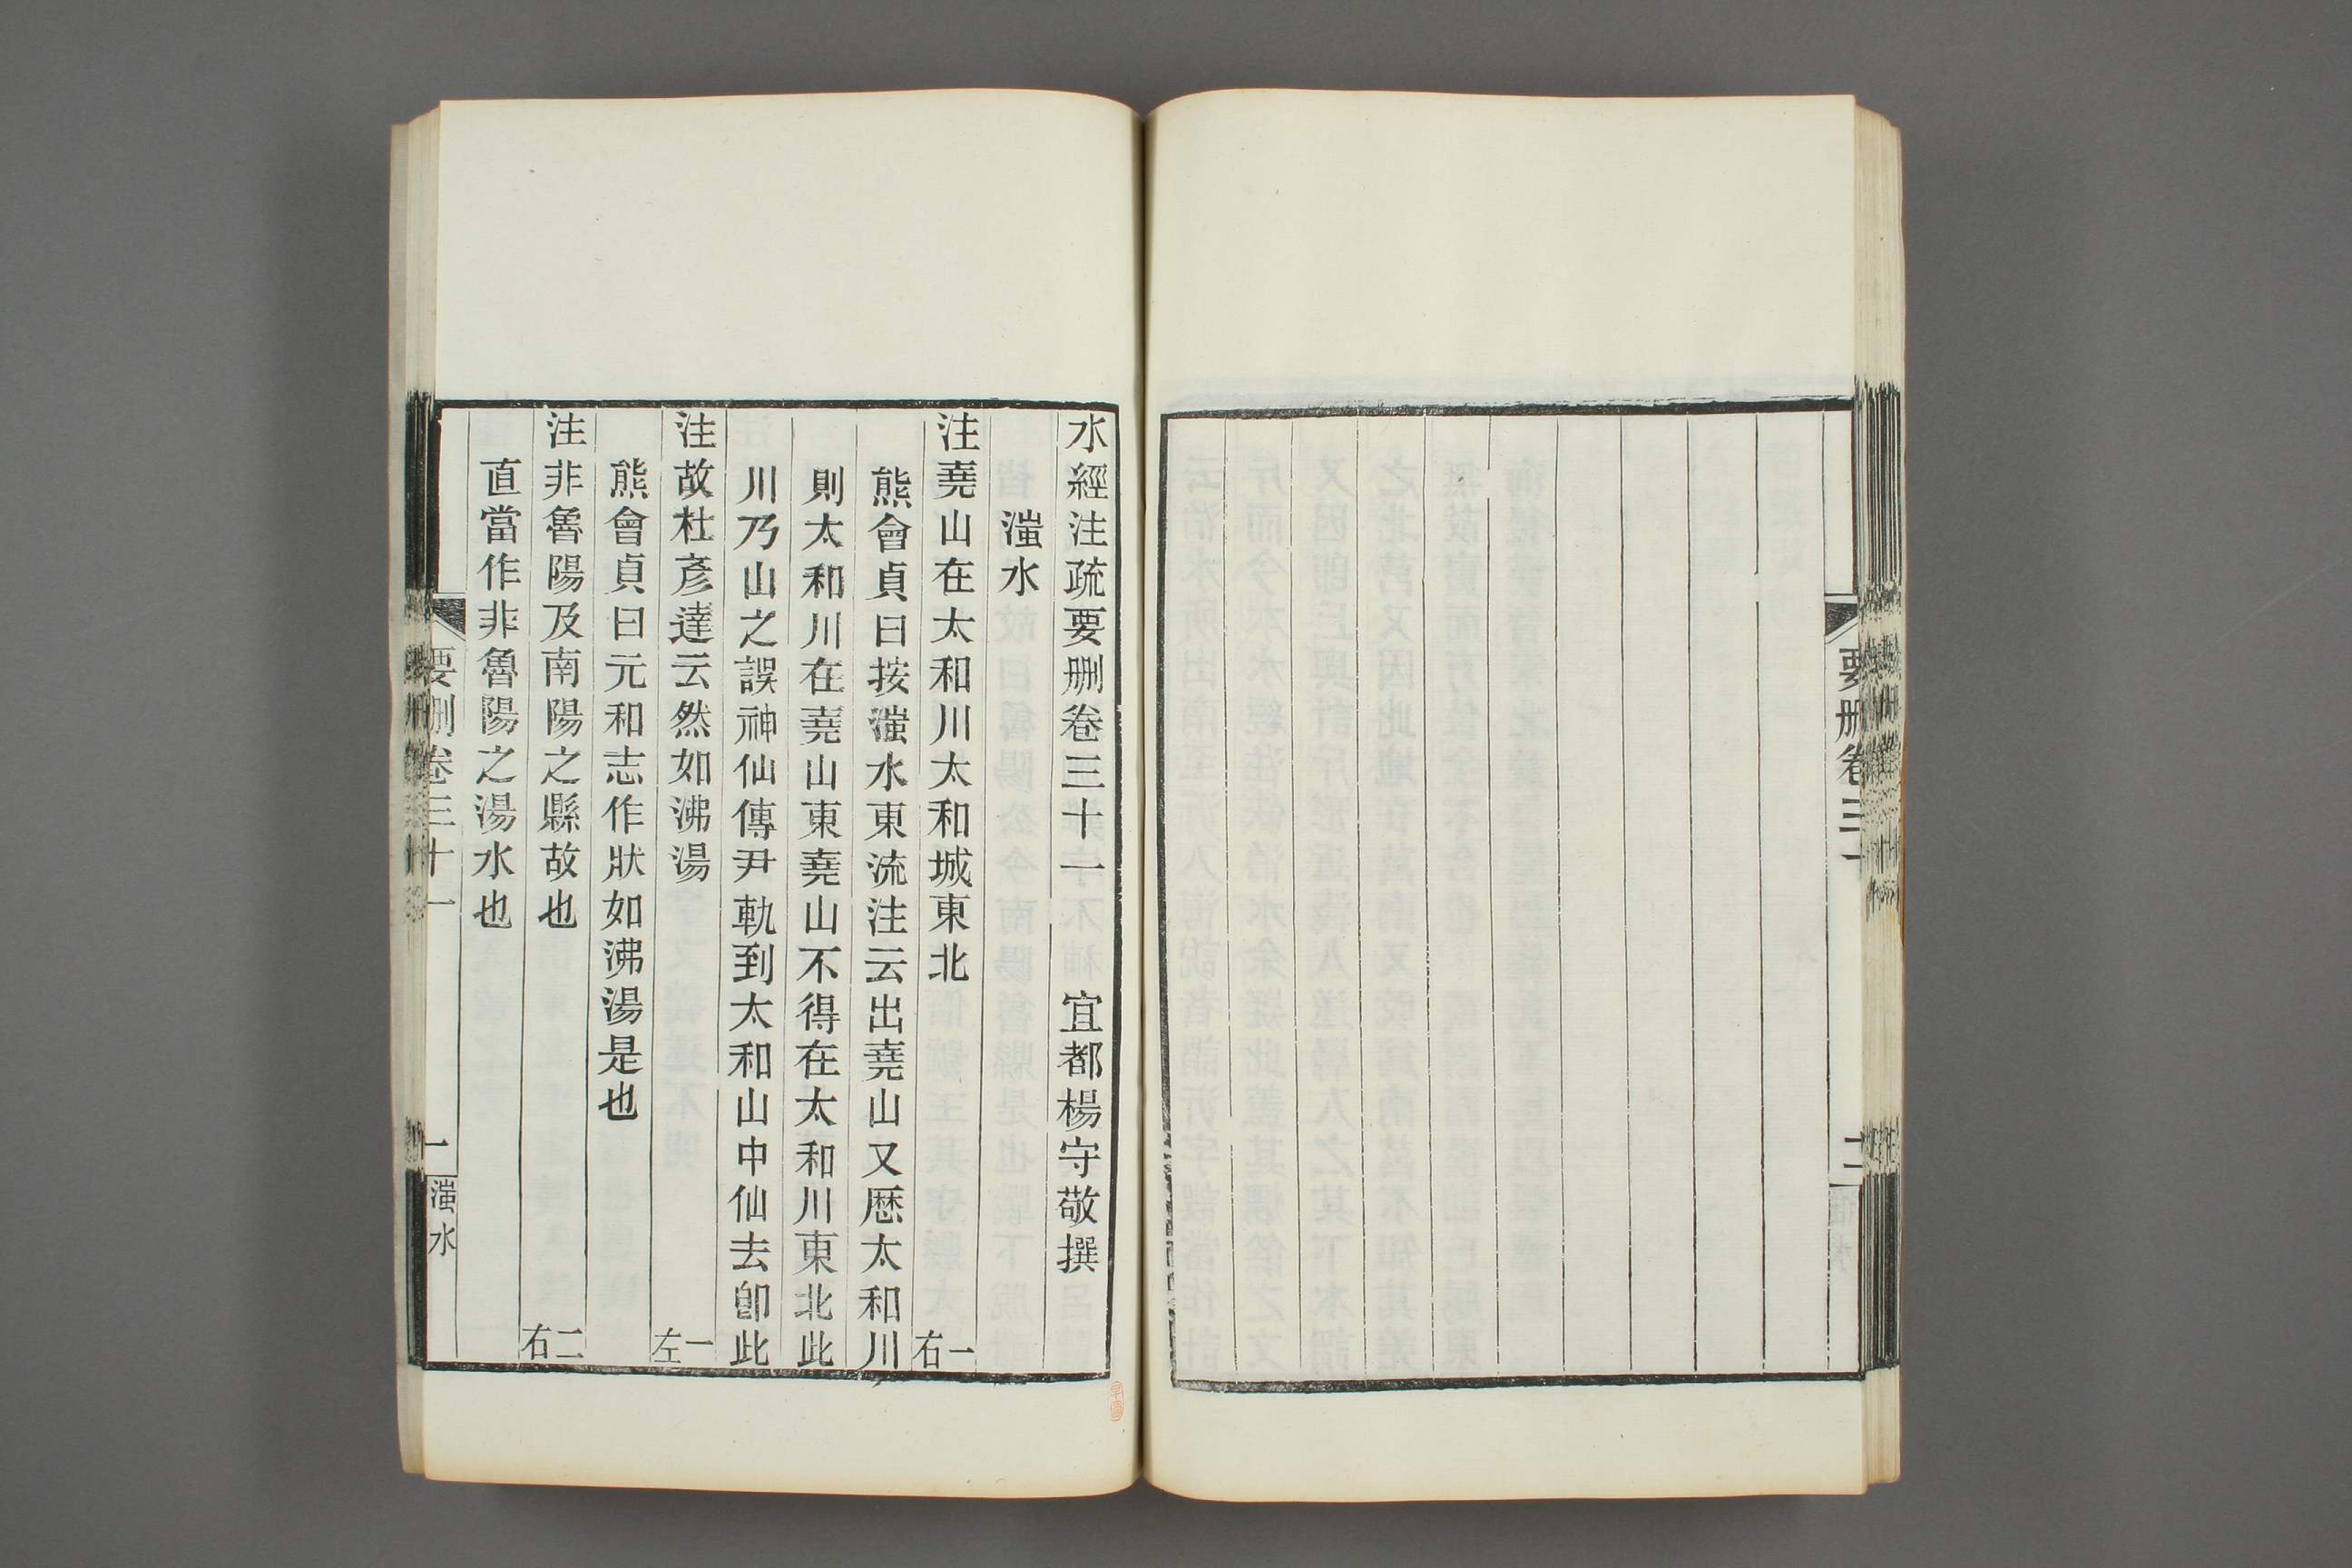 要刪卷三十
水經注疏要刪卷三十一　宜都楊守敬撰
滍水
注堯山在太和川太和城東北　一右
熊會貞曰按滍水東流注云出堯山又歷太和川
則太和川在堯山東堯山不得在太和川東北此
川乃山之誤神仙傳尹軌到太和山中仙去卽此
注故杜彥達云然如沸湯　一左
熊會貞曰元和志作狀如沸湯是也
注非魯陽及南陽之縣故也　二右
直當作非魯陽之湯水也
要刪卷三十一　一　滍水